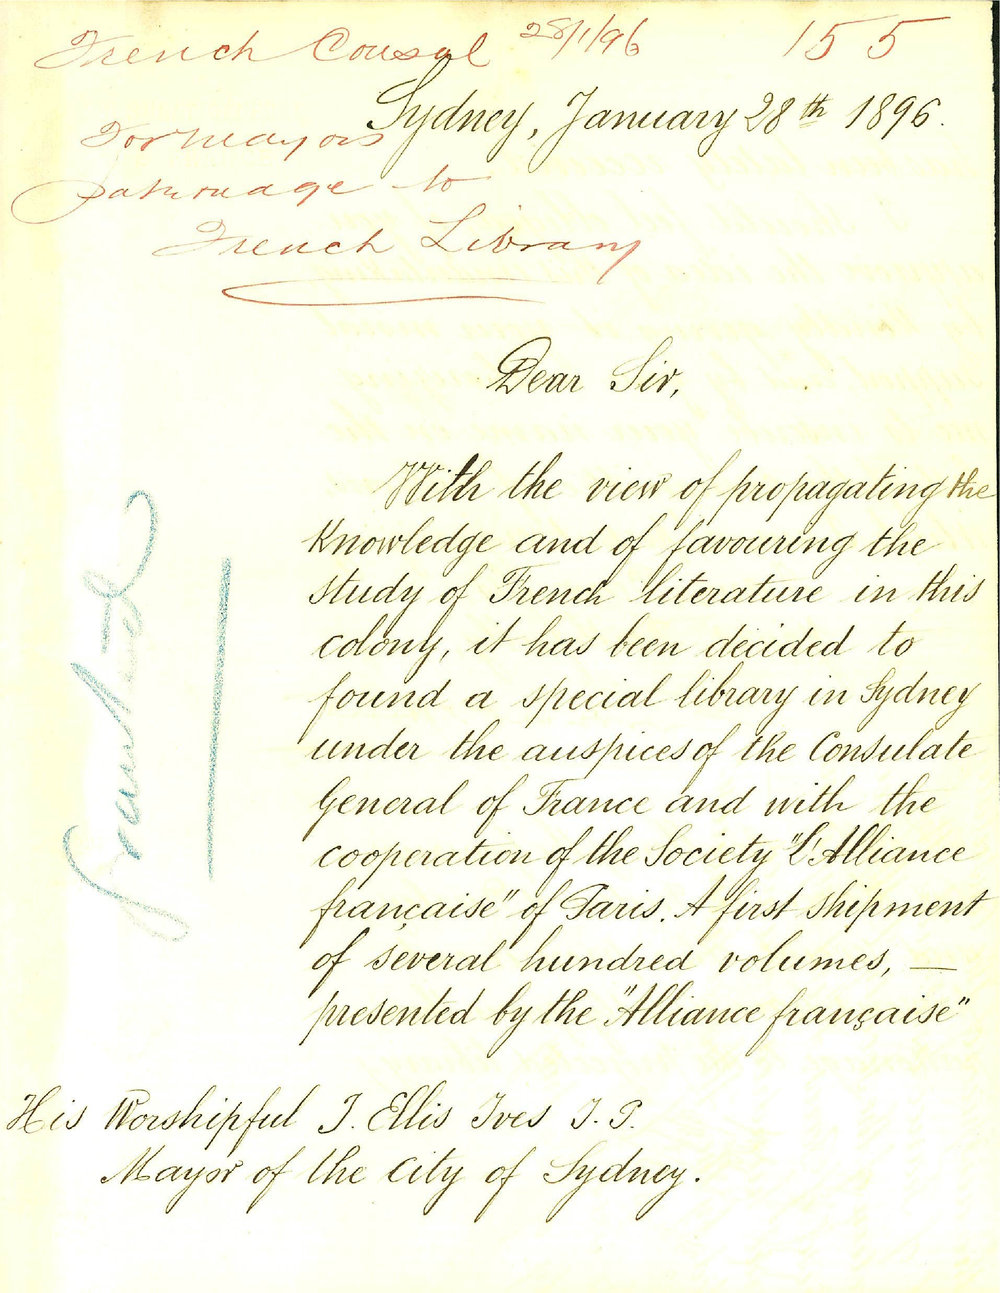 French Consul 28/1/96 155
Sydney, January 28th 1896.
For Mayors
patronage to
French Library
Dear Sir,
With the view of propagating the
Knowledge and of favouring the
study of French literature in this
colony, it has been decided to
found a special library in Sydney
under the auspices of the Consulate
General of France and with the
cooperation of the Society "L'Alliance
française" of Paris. A first shipment
of several hundred volumes, —
presented by the "Alliance française"
His Worshipful I. Ellis Ives J. P.
Mayor of the City of Sydney.
granted